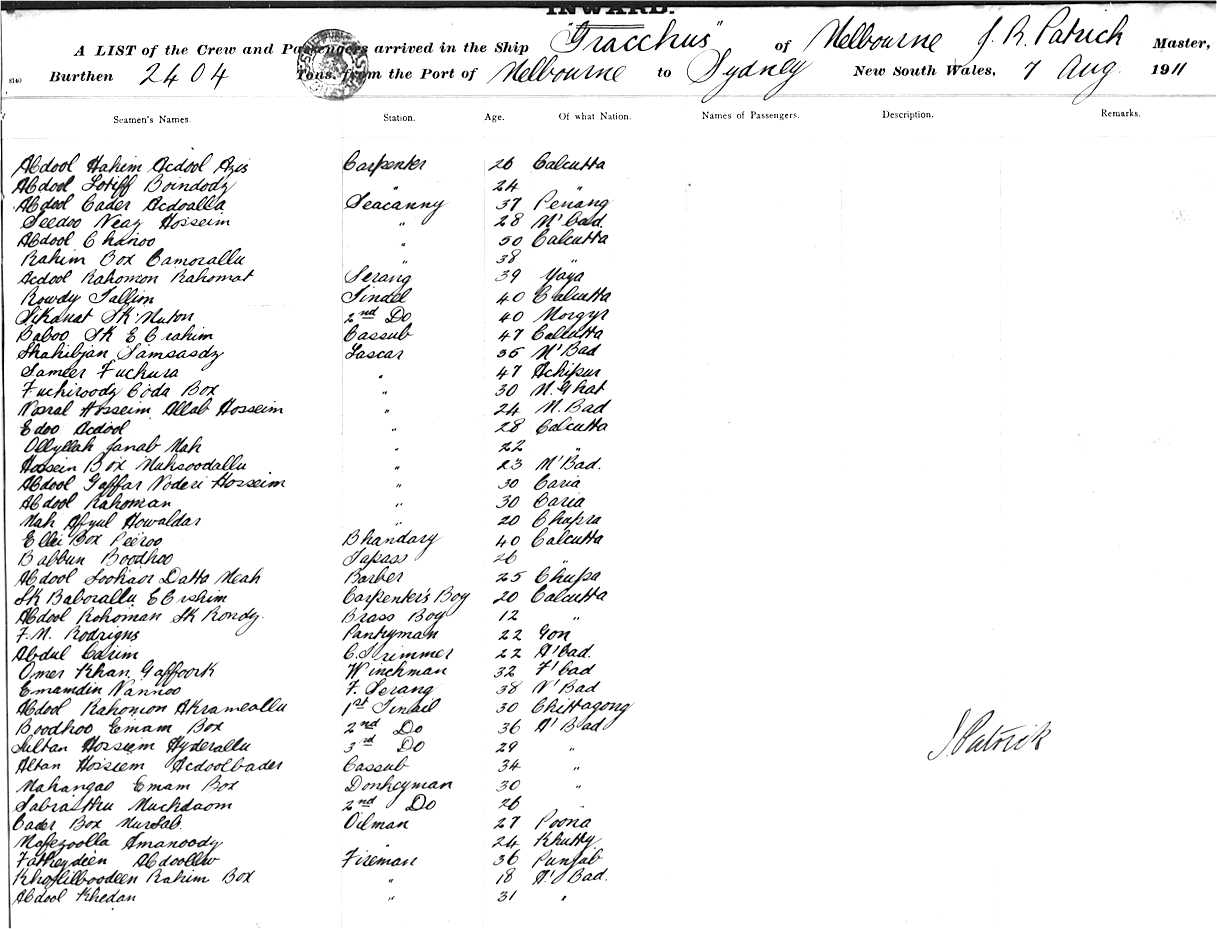 INWARD.
A LIST of the Crew and Passengers arrived in the Ship "Gracchus" of Melbourne J. R. Patrick Master,
8140 Burthen 2404 Tons, from the Port of Melbourne to Sydney New South Wales, 7 Aug. 1911
Seamen's Names. Station. Age. Of what Nation. Names of Passengers. Description. Remarks.
Abdool Hakim Acdool Azis Carpenter 26 Calcutta
Abdool Lotiff Boindody " 24 "
Abdool Cader Acdoalla Seacanny 37 Penang
Seedoo Neay Hosseim " 28 M'bad.
Abdool Chanoo " 50 Calcutta
Rahim Box Camorallu " 38 "
Acdool Rahomon Rahomat Serang 39 Yaya
Rowdy Sallim Tindel 40 Calcutta
Sikanat Sk Nuton 2nd Do 40 Morgyr
Baboo Sk E Crahim Cassub 47 Calcutta
Shahibjan Samsasdy Lascar 35 M'Bad
Sameer Fuchura " 47 Achipur
Fuchiroody Coda Box " 30 N. Ghat
Nosral Hosseim Allab Hosseim " 24 M. Bad
Edoo Acdool " 28 Calcutta
Ollyllah Janab Mah " 22 "
Hossein Box Mahsoodallu " 23 M'Bad.
Abdool Gaffar Noderi Hosseim " 30 Caria
Abdool Rahoman " 30 Caria
Mah Afyul Howaldar " 20 Chapra
Ellei Box Peeroo Bhandary 40 Calcutta
Babbun Boodhoo Topass 26 "
Abdool Datto Meah Barber 25 Chupa
Sk Baborallu E Crshim Carpenter's Boy 20 Calcutta
Abdool Rohoman Sk Rondy. Brass Boy 12 "
F. M. Rodrigns Pantryman 22 Gon
Abdul Carim C. Trimmer 22 A'bad.
Omer Khan Gaffoork Winchman 32 F'bad
Emamdin Nannoo F. Serang 38 N'Bad
Abdool Rahomon Akrameallu 1st Tindil 30 Chittagong
Boodhoo Eimam Box 2nd Do 36 A'Bad
Sultan Hosseim Hyderallu 3rd Do 29 "
Altan Hosseim Acdoolbader Cassub 34 "
Mahangao Emam Box Donkeyman 30 "
Muchdaom 2nd Do 26 "
Cader Box Nursab. Oilman 27 Poona
Mafezoolla Amanoody " 24 Khutty
Fatheydeen Abdoollew Fireman 36 Punjab
Rahim Box " 18 A'Bad.
Abdool Khedan " 31 "
J Patrick